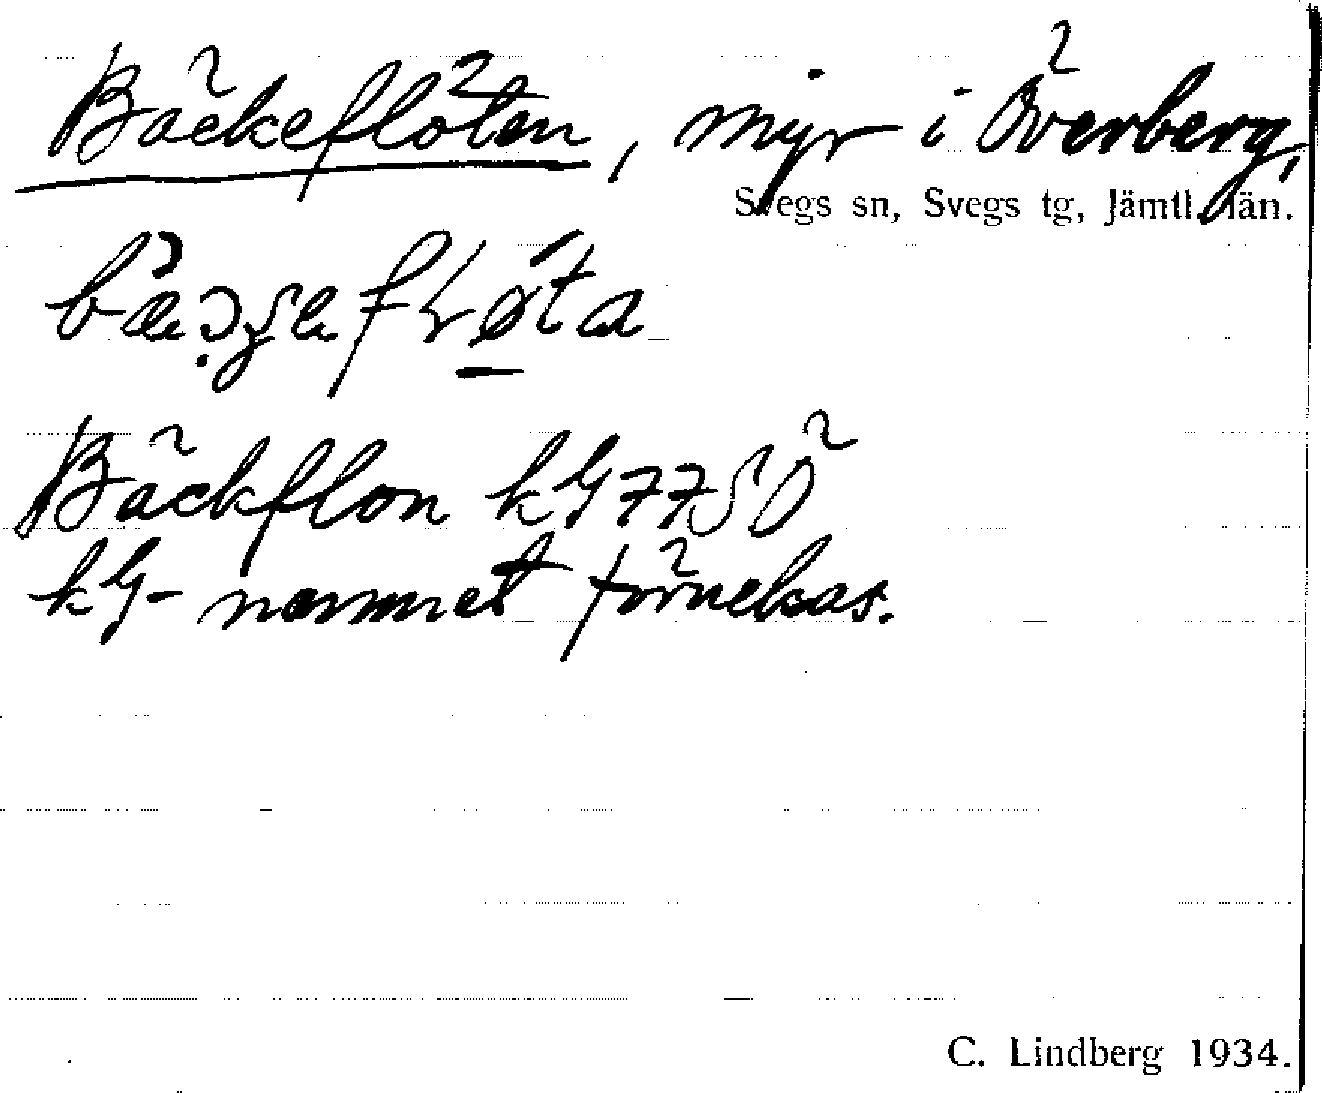 Bäckeflöten, myr i Överberg,
Svegs sn, Svegs tg, Jämtl. län.
Bäckflon kG 77 SÖ
kG-namnet förnekas.
C. Lindberg 1934.